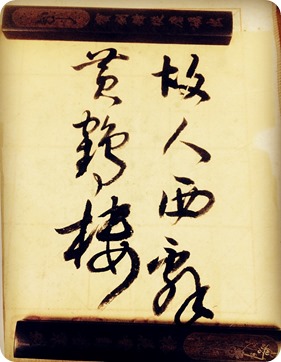 故人西辞
黄鹤楼